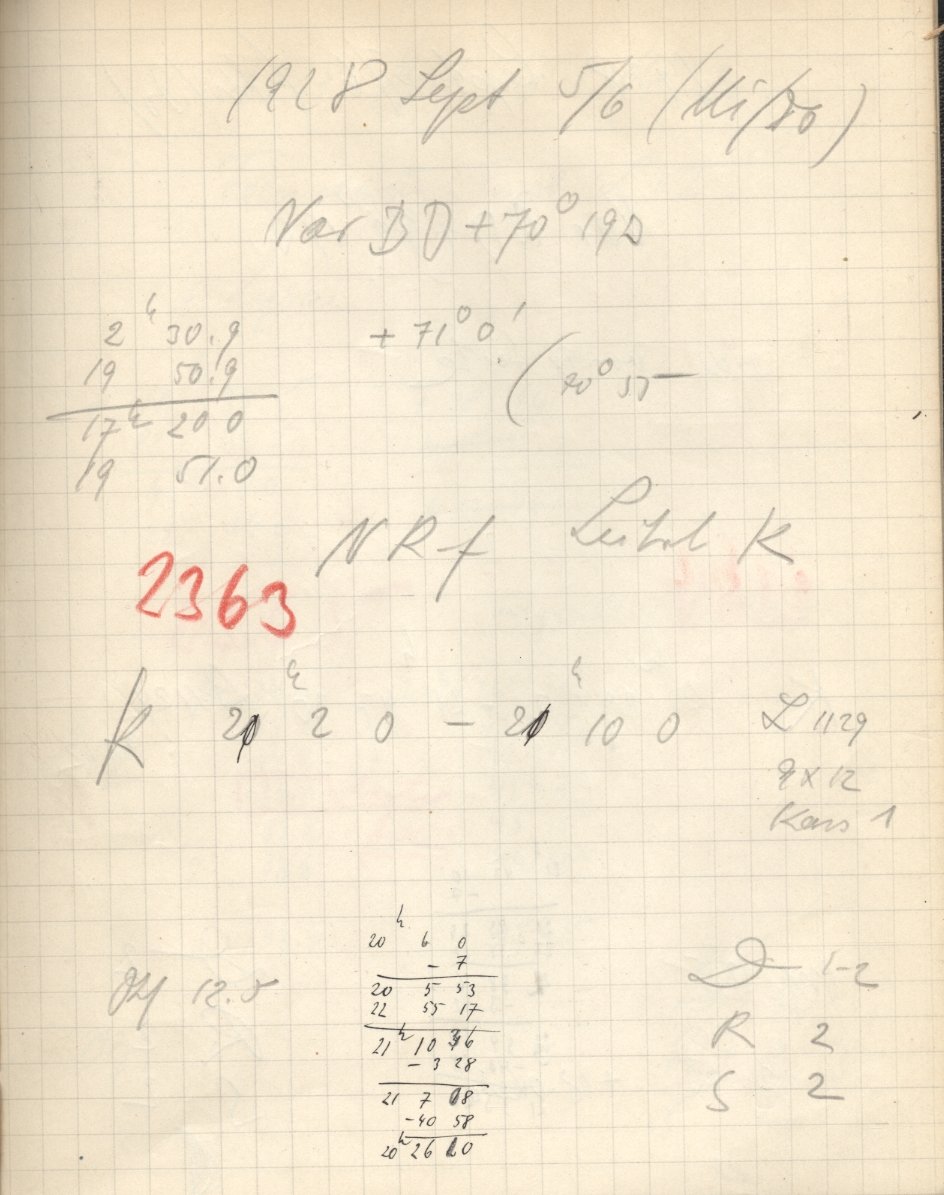 1928 Sept 5/6 (Mi/Do)
Var BD +70° 192
2ʰ 30.9 +71° 0'
19 50.9 (70° 55
17ʰ 20 0
19 51.0
NRf K
2363
K 20ʰ 2 0 – 20ʰ 10 0 L 1129
9x12
Kass 1
20ʰ 6 0
– 7
20 5 53
22 55 17
21ʰ 10 36
– 3 28
21 7 08
– 40 58
20ʰ 26 10
12.5
D 1-2
R 2
S 2